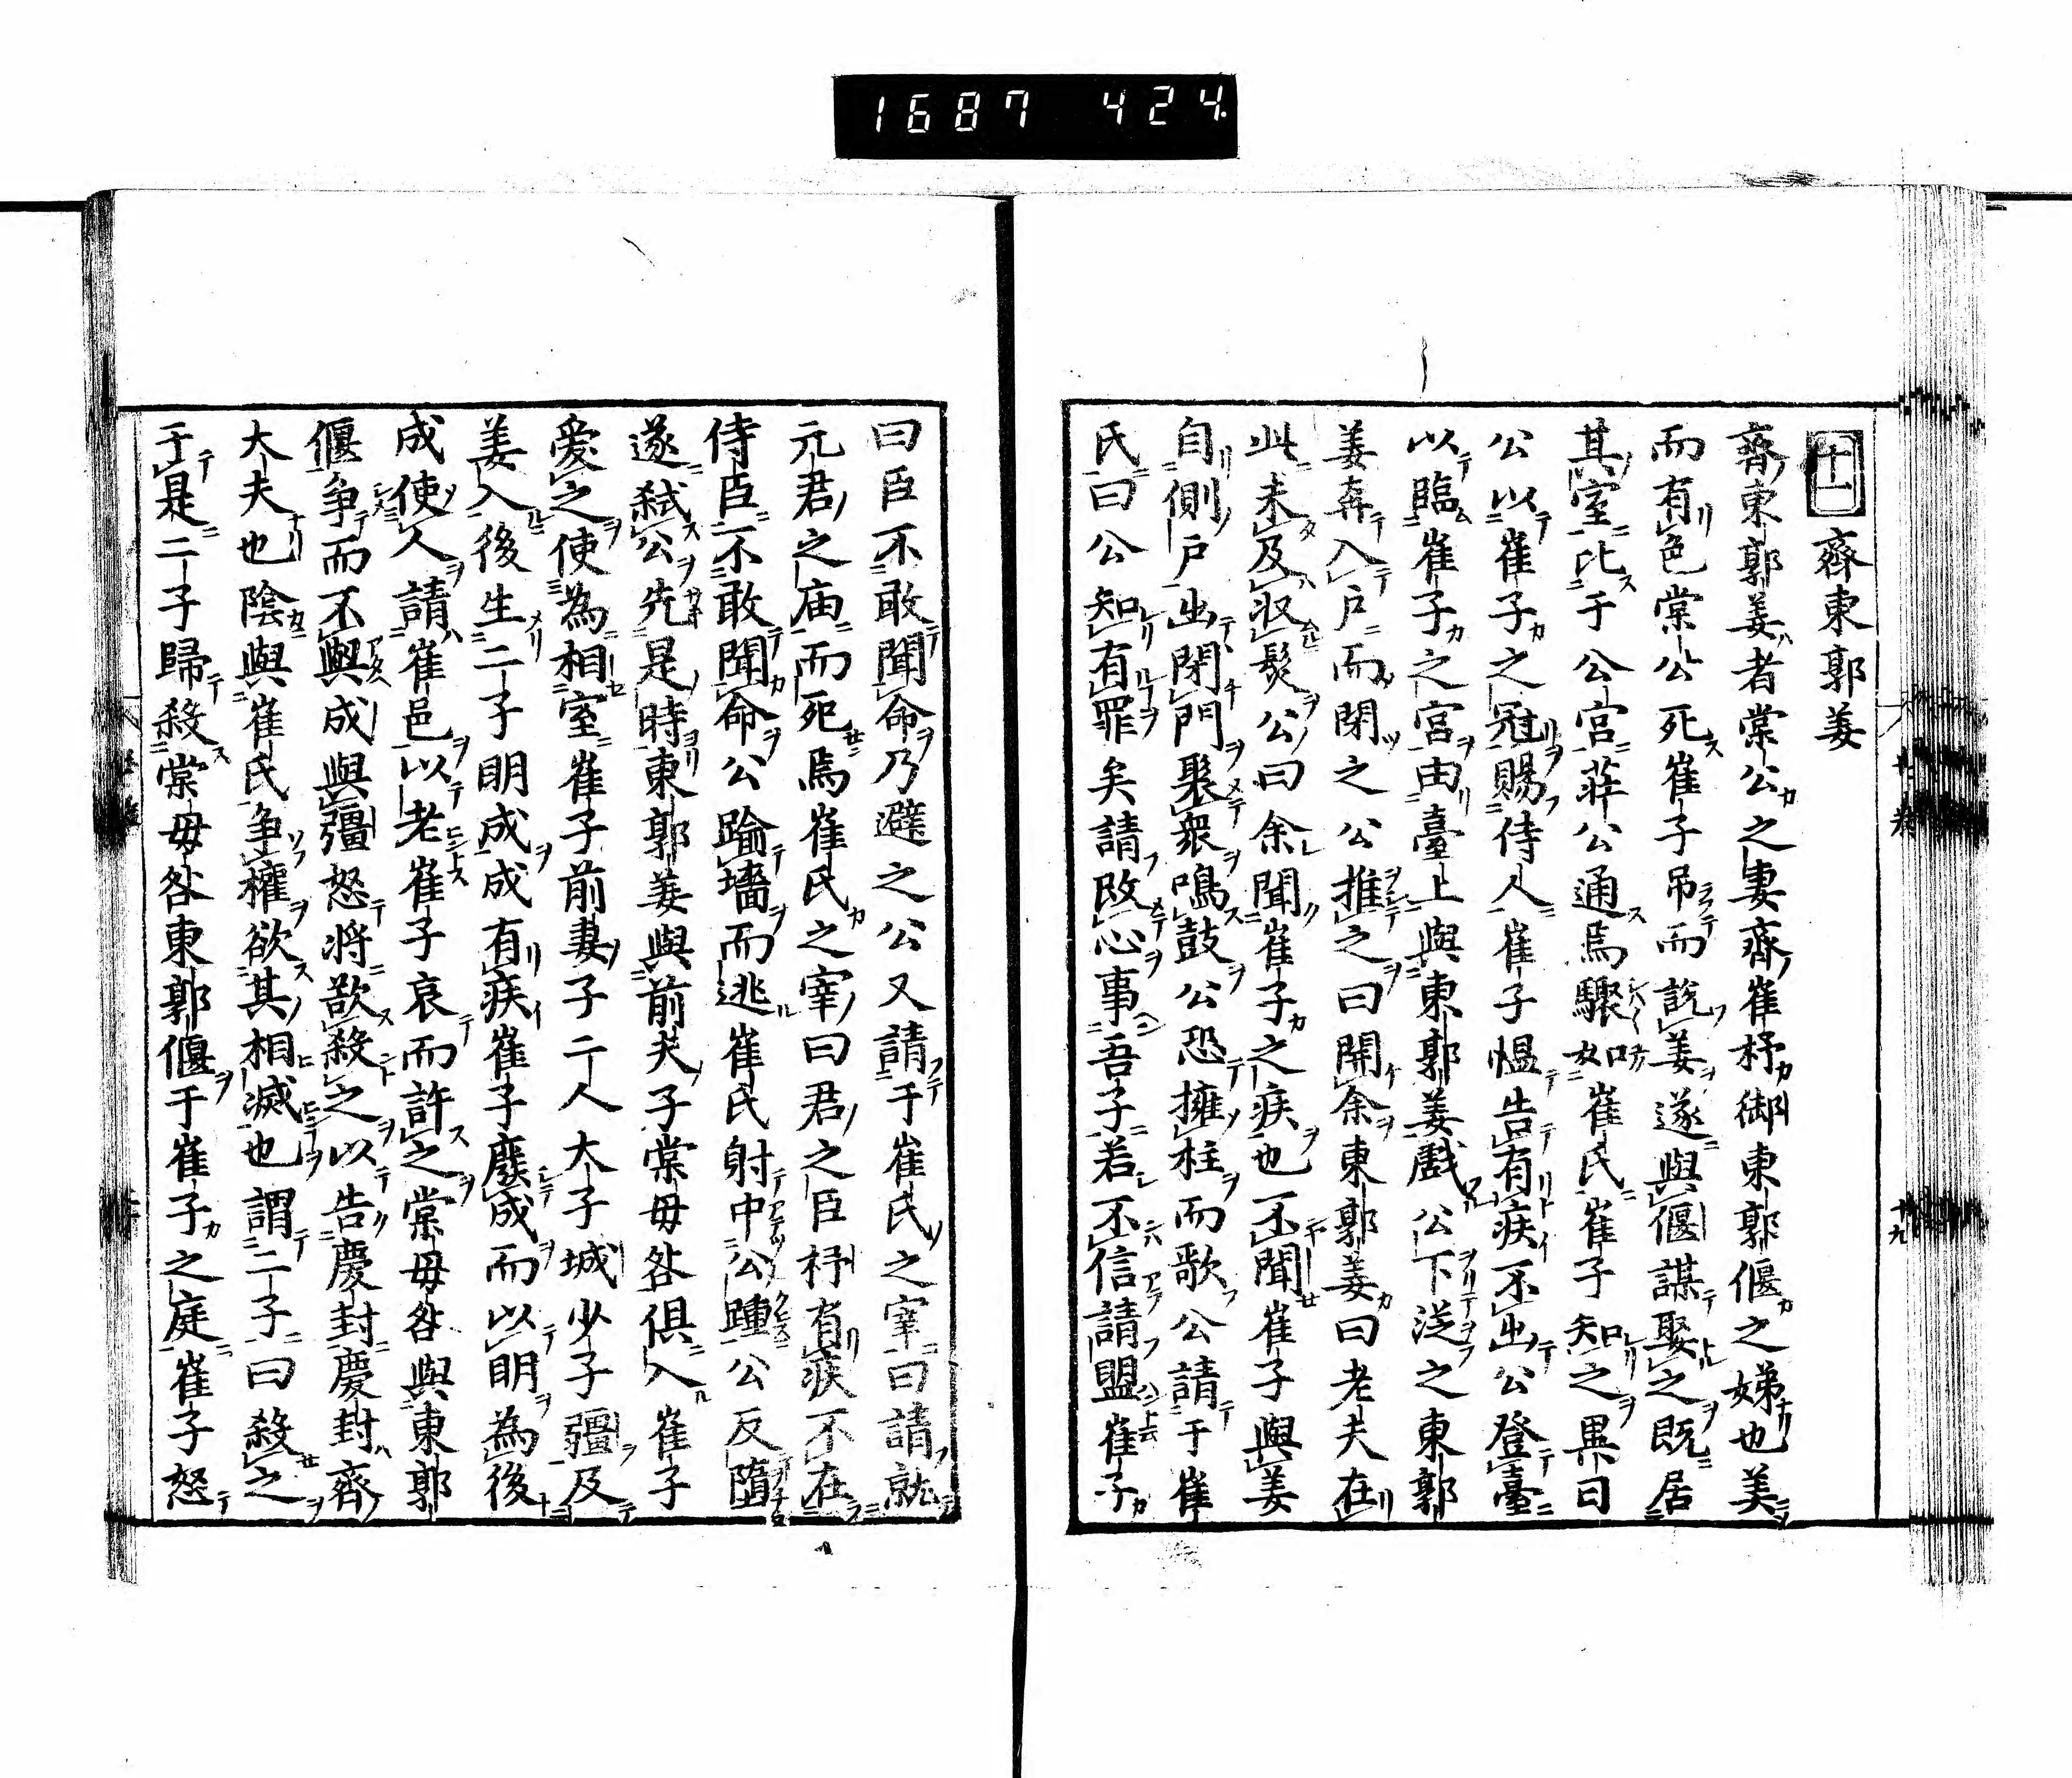 1687 424.
十一 齊東郭姜
齊東郭姜者棠公之妻齊崔杼御東郭偃之娣也美
而有色棠公死崔子吊而説姜遂與偃謀娶之既居
其室比于公宮莊公通焉驟如崔氏崔子知之異日
公以崔子之冠賜侍人崔子愠告有疾不出公登臺
以臨崔子之宮由臺上與東郭姜戲公下從之東郭
姜奔入戶而閉之公推之曰開余東郭姜曰老夫在
此未及收髮公曰余聞崔子之疾也不聞崔子與姜
自側戶出閉門聚衆鳴鼓公恐擁柱而歌公請于崔
氏曰公知有罪矣請改心事吾子若不信請盟崔子
曰臣不敢聞命乃避之公又請于崔氏之宰曰請就
元君之庙而死焉崔氏之宰曰君之臣杼有疾不在
侍臣不敢聞命公踰墻而逃崔氏射中公踵公反墮
遂弑公先是時東郭姜與前夫子棠毋咎俱入崔子
愛之使為相室崔子前妻子二人大子城少子彊及
姜入後生二子明成成有疾崔子廢成而以明為後
成使人請崔邑以老崔子哀而許之棠毋咎與東郭
偃争而不與成與彊怒将欲殺之以告慶封慶封齊
大夫也陰與崔氏争權欲其相滅也謂二子曰殺之
于是二子歸殺棠毋咎東郭偃于崔子之庭崔子怒
十九